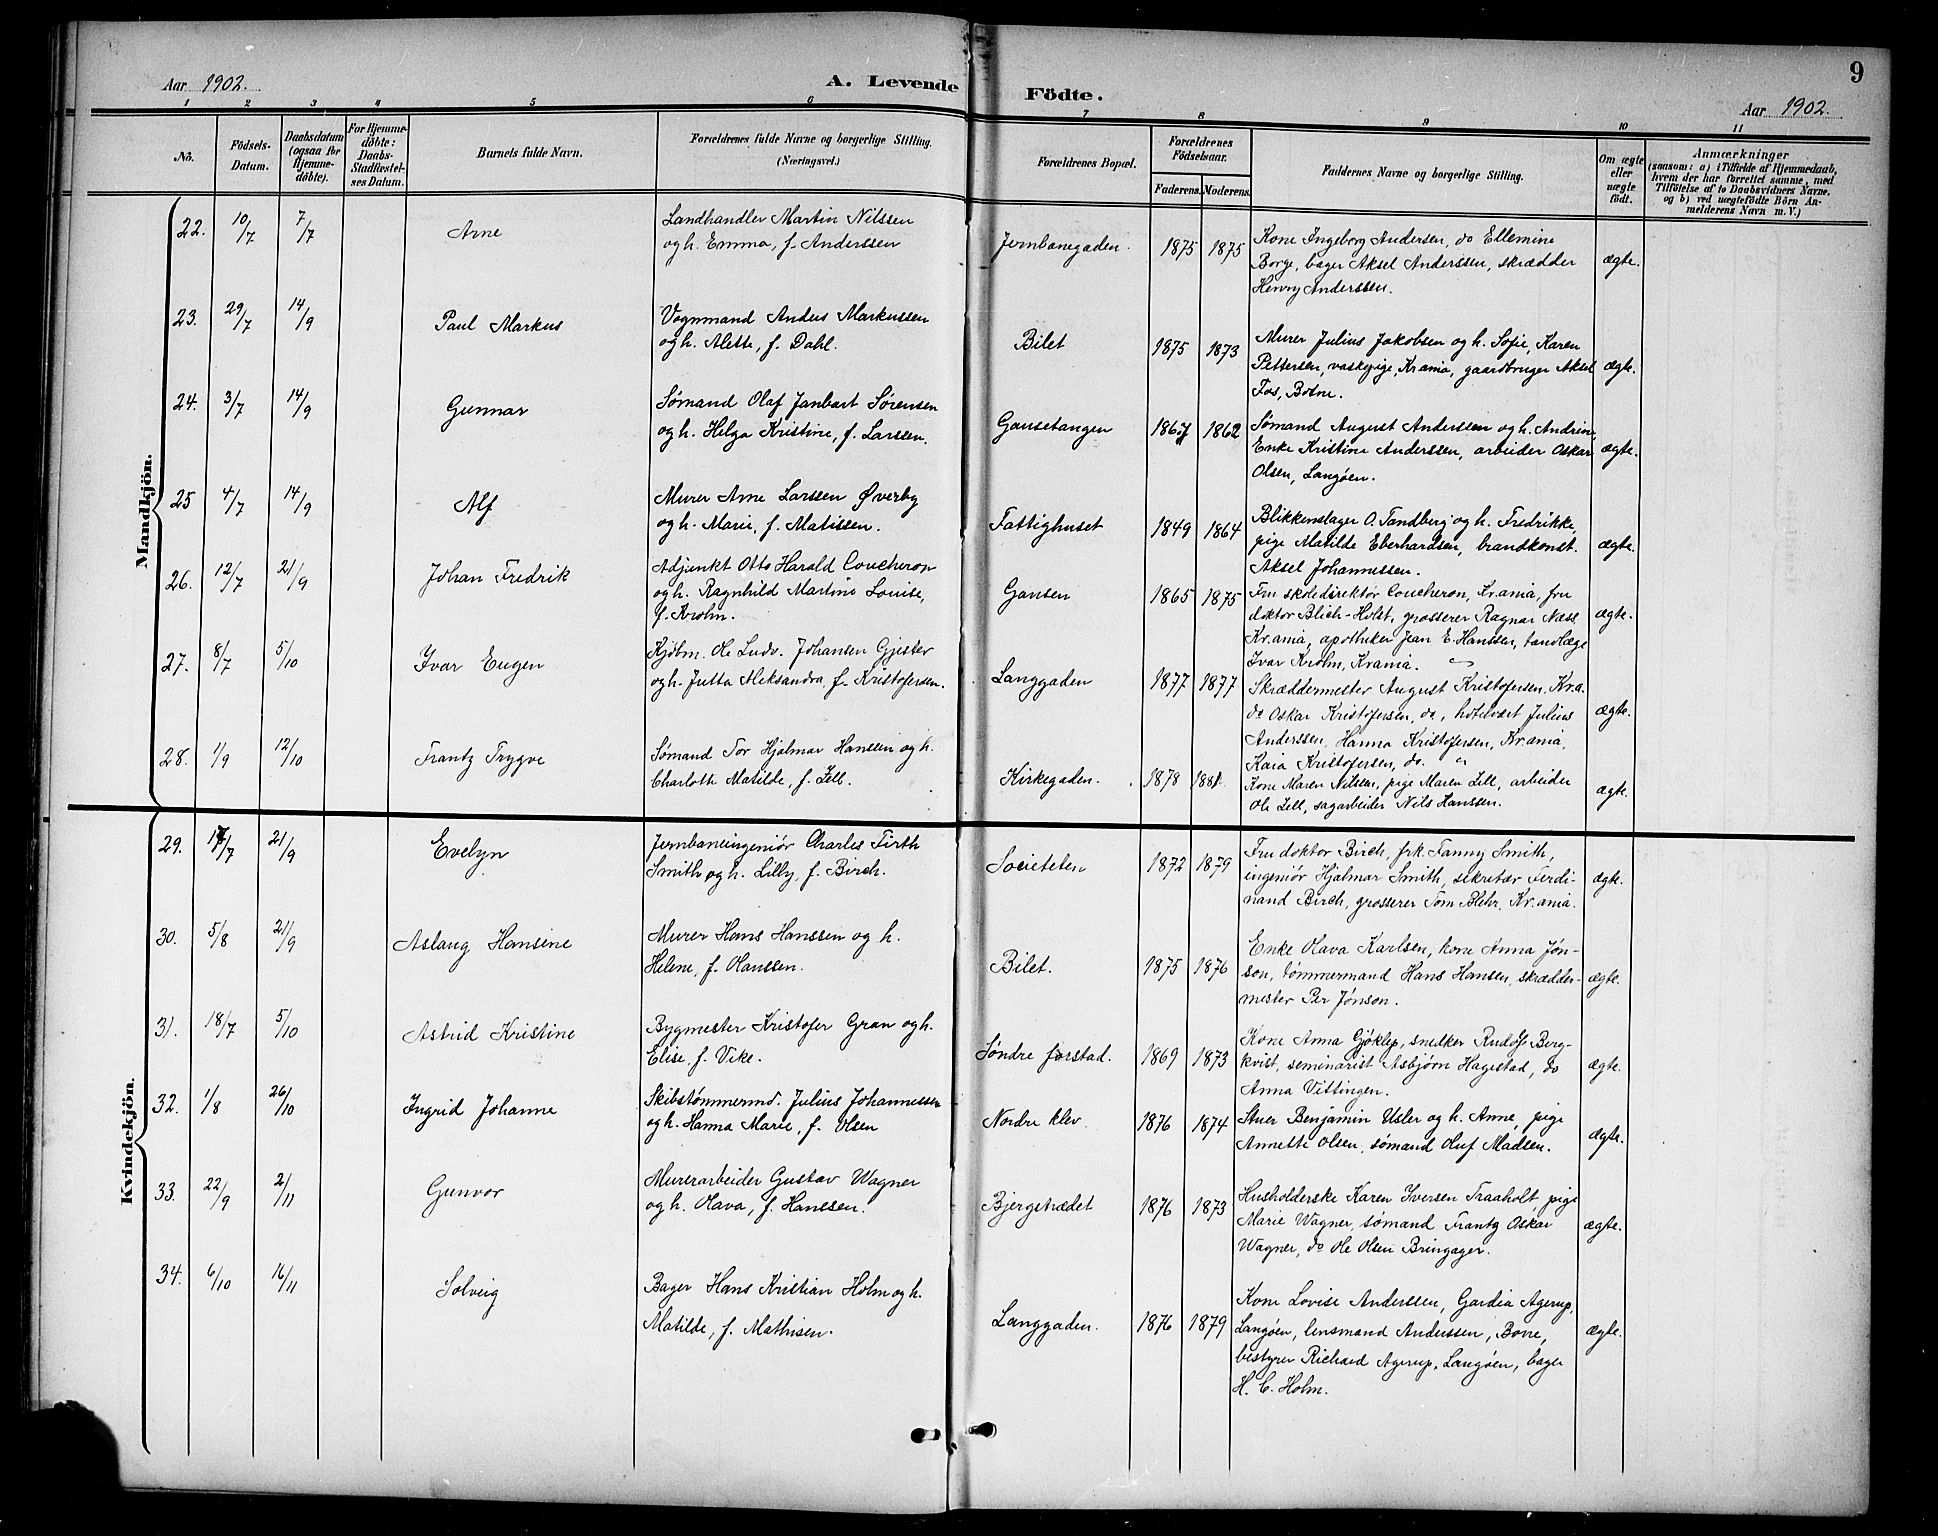 Aar 1902.
A. Levende Födte.
9
Aar 1902.
1 2 3 4 5 6 7 8 9 10 11
No.
Födsels-Datum.
Daabsdatum (ogsaa for Hjemme-döbte).
For Hjemme-döbte: Daabs-Stadfæstel-ses Datum.
Barnets fulde Navn.
Forældrenes fulde Navne og borgerlige Stilling. (Næringsvei.)
Forældrenes Bopæl.
Forældrenes Födselsaar.
Faderens. Moderens.
Faddernes Navne og borgerlige Stilling.
Om ægte eller uægte födt.
Anmærkninger
(saasom: a) i Tilfælde af Hjemmedaab, hvem der har forrettet samme, med Tilföielse af to Daabsvidners Navne, og b) ved uægtefödte Börn An-melderens Navn m. V.)
Mandkjön.
22. 10/7 7/7 Arne
Landhandler Martin Nilssen
og h. Emma, f. Anderssen
Jernbanegaden. 1875 1875
Kone Ingeborg Andersen, do Ellemine
Borge, bager Aksel Anderssen, skrædder
Henry Anderssen.
ægte.
23. 29/7 14/9 Paul Markus
Vognmand Anders Markussen
og h. Alette, f. Dahl.
Bilet 1875 1873
Murer Julius Jakobsen og h. Sofie, Karen
Pettersen, vaskepige, Kr.ania, gaardbruger Aksel
Fos, Botne.
ægte.
24. 3/7 14/9 Gunnar
Sømand Olaf Janbart Sørensen
og h. Helga Kristine, f. Larssen.
Gausetangen 1867 1862
Sømand August Anderssen og h. Andrine,
Enke Kristine Anderssen, arbeider Oskar
Olsen, Langøen.
ægte.
25 4/7 14/9 Alf
Murer Arne Larssen Øverby
og h. Marie, f. Matissen.
Fattighuset 1849 1864
Blikkenslager O. Tandberg og h. Fredrikke,
pige Matilde Eberhardsen, brandkonst.
Aksel Johannessen.
ægte.
26. 12/7 21/9 Johan Fredrik
Adjunkt Otto Harald Coucheron
og h. Ragnhild Martine Louise,
f. Krohn.
Gausen 1865 1875
Fru skoledirektør Coucheron, Kr.ania, fru
doktor Blich-Holst, grosserer Ragnar Næss,
Kr.ania, apotheker Jean E. Hanssen, tandlæge
Ivar Krohn, Kr.ania.
ægte.
27. 8/7 5/10 Ivar Eugen
Kjøbm. Ole Ludv. Johansen Gjester
og h. Jutta Aleksandra, f. Kristofersen.
Langgaden 1877 1877
Skræddermester August Kristofersen, Kr.a.
do Oskar Kristofersen, do, hotelvært Julius
Anderssen, Hanna Kristofersen, Kr.ania,
Kaia Kristofersen, do. "
ægte.
28. 1/9 12/10 Frantz Trygve
Sømand Tor Hjalmar Hanssen og h.
Charlotte Matilde, f. Lell.
Kirkegaden. 1878 1881.
Kone Maren Nilsen, pige Maren Lell, arbeider
Ole Lell, sagarbeider Nils Hanssen.
ægte.
Kvindekjön.
29. 17/7 21/9 Evelyn
Jernbaneingeniør Charles Firth
Smith og h. Lilly, f. Birch.
Societeten 1872 1879
Fru doktor Birch, frk. Fanny Smith,
ingeniør Hjalmar Smith, sekretær Ferdi-
nand Birch, grosserer Tom Blehr, Kr.ania.
ægte.
30. 5/8 21/9 Aslaug Hansine
Murer Hans Hanssen og h.
Helene, f. Hanssen.
Bilet. 1875 1876
Enke Olava Karlsen, kone Anna Jøn-
son, tømmermand Hans Hansen, skrædder-
mester Per Jønson.
ægte.
31. 18/7 5/10 Astrid Kristine
Bygmester Kristofer Gran og h.
Elise, f. Vike.
Søndre forstad. 1869 1873
Kone Anna Gjøklep, snedker Rudolf Berg-
kvist, seminarist Asbjørn Hagestad, do
Anna Vittingen.
ægte.
32. 1/8 26/10 Ingrid Johanne
Skibstømmermd. Julius Johannessen
og h. Hanna Marie, f. Olsen
Nordre klev. 1876 1874
Stuer Benjamin Usler og h. Anne, pige
Annette Olsen, sømand Oluf Madsen.
ægte.
33. 22/9 2/11 Gunvor
Murerarbeider Gustav Wagner
og h. Olava, f. Hanssen.
Bjergstrædet 1876 1873
Husholderske Karen Iversen Traaholt, pige
Marie Wagner, sømand Frantz Oskar
Wagner, do Ole Olsen Bringager.
ægte.
34. 6/10 16/11 Solveig
Bager Hans Kristian Holm og h.
Matilde, f. Mathisen.
Langgaden. 1876 1879
Kone Lovise Anderssen, Gardia Agerup,
Langøen, lensmand Anderssen, Borre,
bestyrer Richard Agerup, Langøen, bager
H. C. Holm.
ægte.